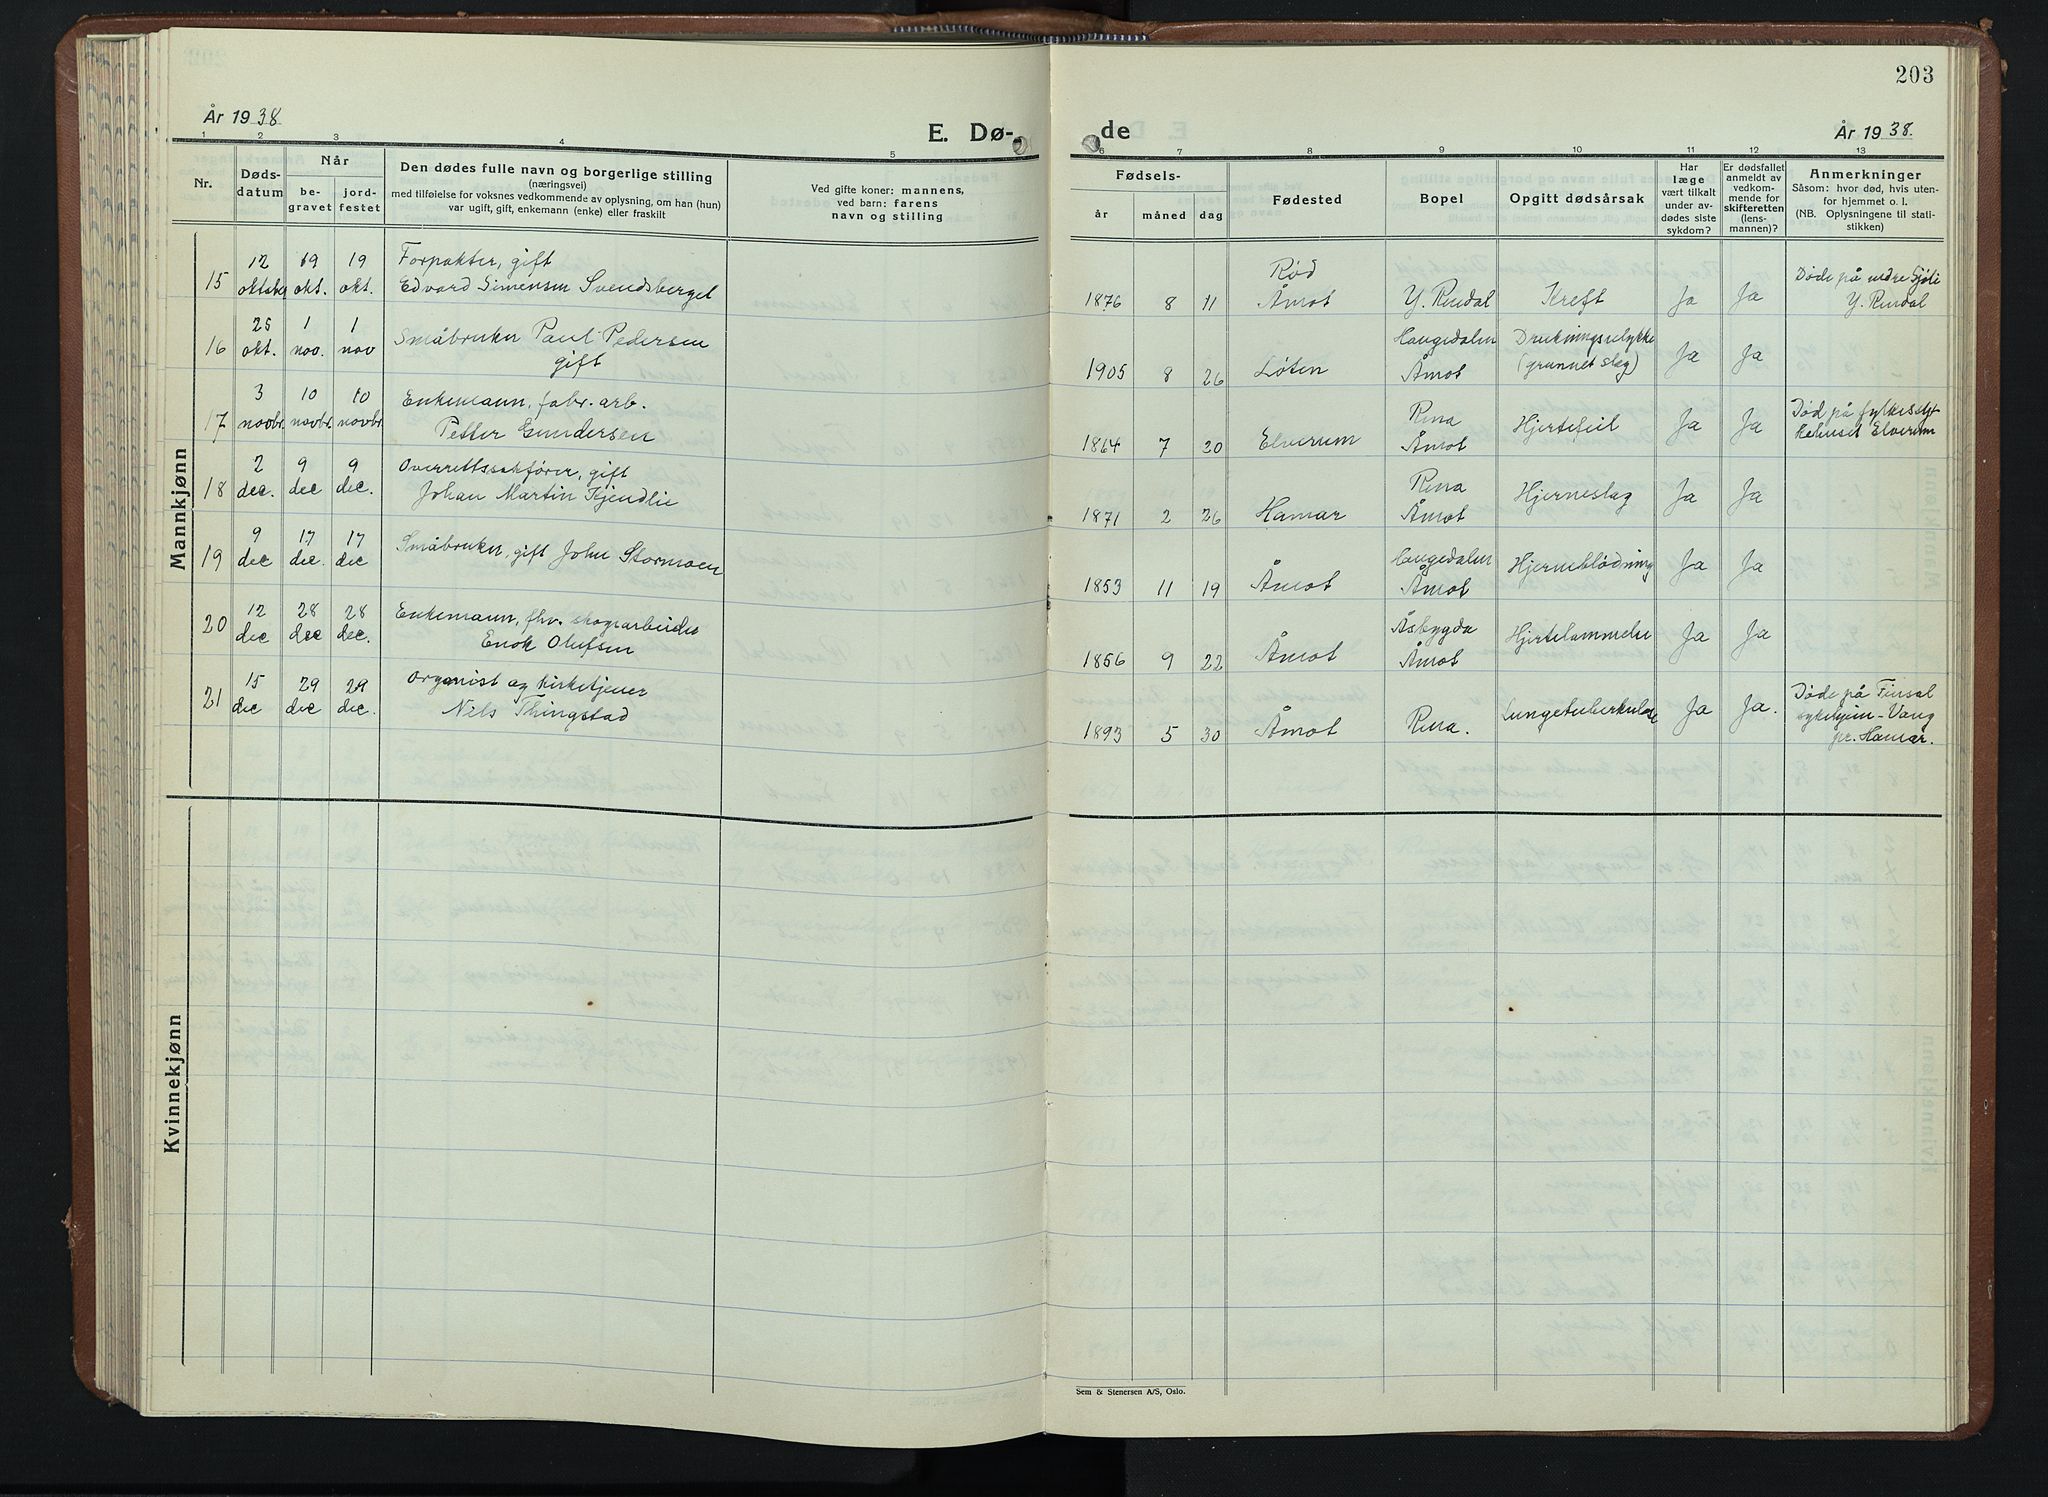 203
År 1938
E. Dø-
de
År 1938.
1 2 3 4 5 6 7 8 9 10 11 12 13
Nr.
Døds-
datum
Når
be-
gravet
jord-
festet
Den dødes fulle navn og borgerlige stilling
(næringsvei)
med tilføielse for voksnes vedkommende av oplysning, om han (hun)
var ugift, gift, enkemann (enke) eller fraskilt
Ved gifte koner: mannens,
ved barn: farens
navn og stilling
Fødsels-
år
måned
dag
Fødested
Bopel
Opgitt dødsårsak
Har
læge
vært tilkalt
under av-
dødes siste
sykdom?
Er dødsfallet
anmeldt av
vedkom-
mende for
skifteretten
(lens-
mannen)?
Anmerkninger
Såsom: hvor død, hvis uten-
for hjemmet o. l.
(NB. Oplysningene til stati-
stikken)
Mannkjønn
15
12
oktober
19
okt.
19
okt.
Forpakter, gift
Edvard Simensen Svendsberget
1876 8 11
Rød
Åmot
Y. Rendal
Kreft
Ja
Ja
Døde på nedre Sjøli
Y. Rendal
16
25
okt.
1
nov.
1
nov
Småbruker Paul Pedersen
gift
1905 8 26
Løten
Haugedalen
Åmot
Drukningsulykke
(grunnet slag)
Ja
Ja
17
3
novbr.
10
novbr.
10
novbr.
Enkemann, fabr. arb.
Petter Gundersen
1864 7 30
Elverum
Rena
Åmot
Hjertefeil
Ja
Ja
Død på fylkessy-
kehuset Elverum
18
2
dec.
9
dec
9
dec.
Overrettssakfører, gift
Johan Martin Kjendlie
1871 2 26
Hamar
Rena
Åmot
Hjerneslag
Ja
Ja
19
9
dec
17
dec.
17
dec
Småbruker, gift John Stormoen
1853 11 19
Åmot
Haugedalen
Åmot
Hjerneblødning
Ja
Ja
20
12
dec
28
dec
28
dec.
Enkemann, fhv. skogsarbeider
Enok Olufsen
1856 9 22
Åmot
Åsbygda
Åmot
Hjertelammelse
Ja
Ja
21
15
dec
29
dec
29
dec.
Organist og kirketjener
Nils Thingstad
1893 5 30
Åmot
Rena.
Lungetuberkulose
Ja
Ja.
Døde på Finsal
sykehjem - Vang
pr. Hamar.
Kvinnekjønn
Sem & Stenersen A/S, Oslo.